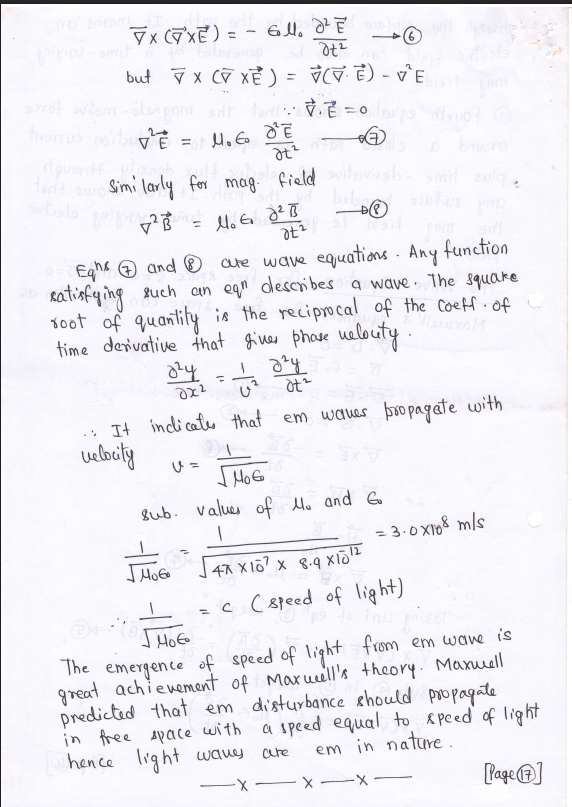 ∇⃗ × (∇⃗ × E⃗) = − ϵ₀ μ₀ ∂²E⃗/∂t² → ⑥
but ∇⃗ × (∇⃗ × E⃗) = ∇⃗(∇⃗ · E⃗) − ∇²E
∵ ∇⃗ · E⃗ = 0
∇²E⃗ = μ₀ ϵ₀ ∂²E⃗/∂t² → ⑦
Similarly for mag. field
∇²B⃗ = μ₀ ϵ₀ ∂²B⃗/∂t² → ⑧
Eqⁿˢ ⑦ and ⑧ are wave equations. Any function
satisfying such an eqⁿ describes a wave. The square
root of quantity is the reciprocal of the coeff. of
time derivative that gives phase velocity
∂²y/∂x² = 1/v² ∂²y/∂t²
∴ It indicates that em waves propagate with
velocity v = 1/√μ₀ϵ₀
sub. values of μ₀ and ϵ₀
1/√μ₀ϵ₀ = 1/√4π × 10⁻⁷ × 8.9 × 10⁻¹² = 3.0 × 10⁸ m/s
∴ 1/√μ₀ϵ₀ = c (speed of light)
The emergence of speed of light from em wave is
great achievement of Maxwell's theory. Maxwell
predicted that em disturbance should propagate
in free space with a speed equal to speed of light
hence light waves are em in nature.
—x—x—x—
[Page ⑰]